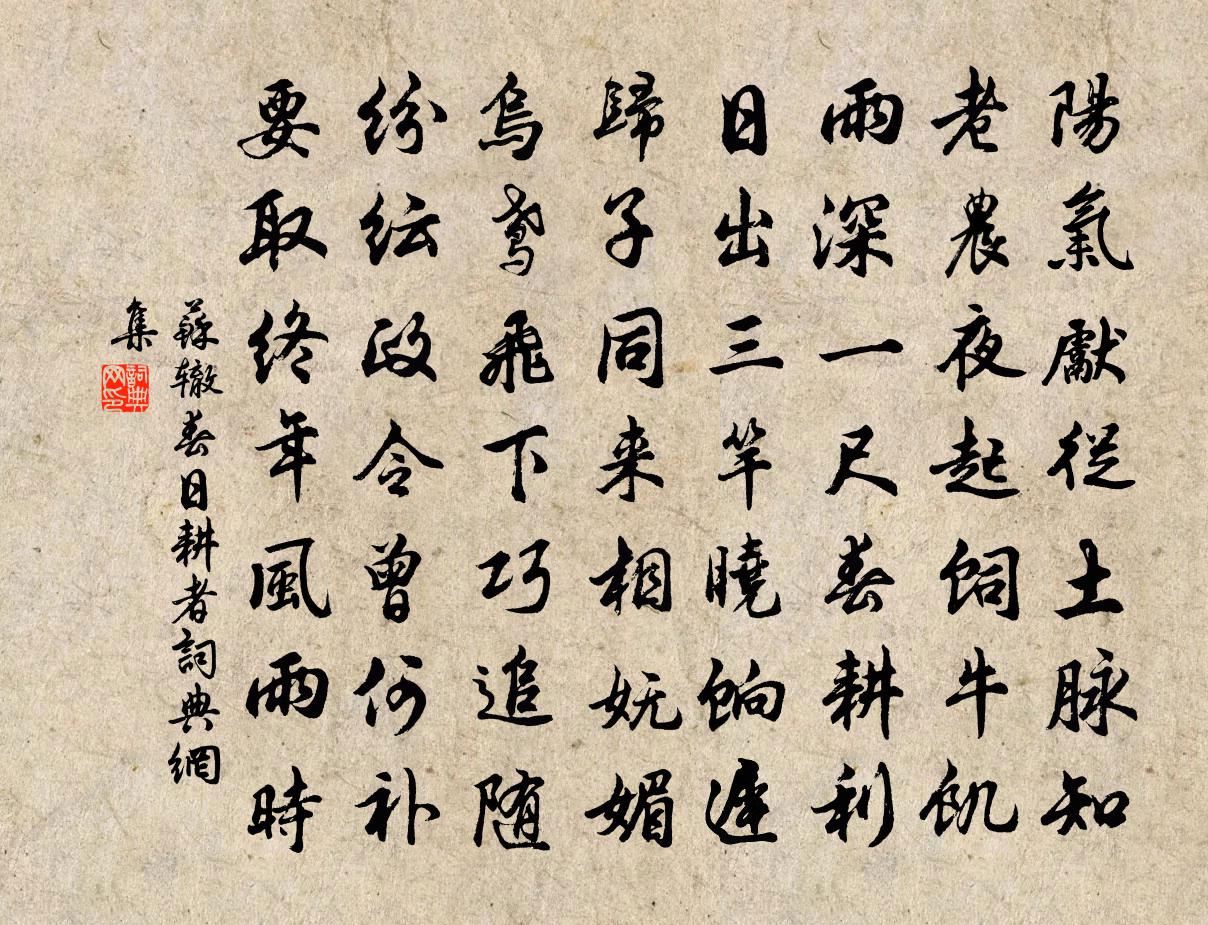 陽氣獻從土脉知
老農夜起飼牛飢
雨深一尺春耕利
日出三竿曉餉遲
歸子同来相妩媚
烏鳶飛下巧追随
纷纭政令曾何补
要取终年風雨時
蘇辙春日耕者詞典網
集
詞典网印